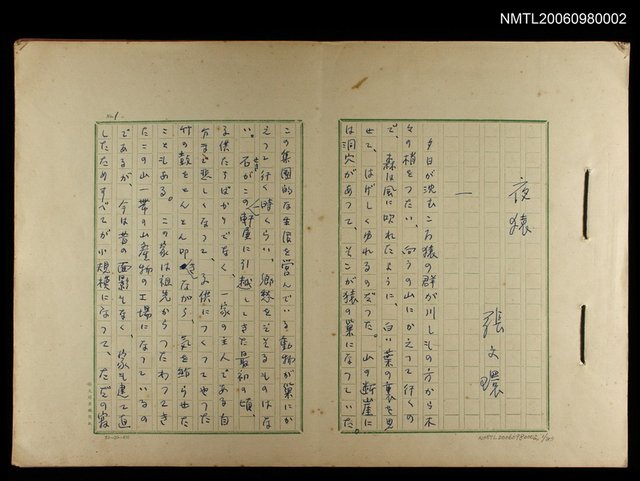 NMTL20060980002
夜猿
張文環
一
夕日が沈むころ猿の群が川しもの方から木
々の梢をつたい、向うの山にかえって行くの
で、森は風に吹れたように、白い葉の裏を見
せて、はげしくゆれるのだった。山の断崖に
は洞穴があって、そこが猿の巣になっていた。
この集團的な生活を営んでいる動物が巣にか
えって行く時くらい、郷愁をそそるものはな
い。石がこの軒屋に引越してきた最初の頃、
子供たちばかりでなく、一家の主人である自
分まで悲しくなって、子供につくってやった
竹の鼓をとんとん叩きながら、気を紛らせた
こともある。この家は祖先からつたわってき
たこの山一帯の山産物の工場になっているの
であるが、今は昔の面影もなく、家も建て直
したためすべてが小規模になって、ただの寂
No. 1
NMTL20060980002